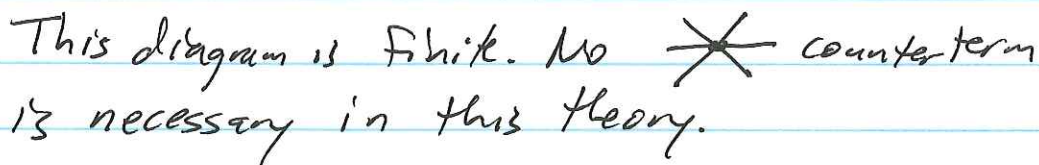 This diagram is finite. No counterterm
is necessary in this theory.